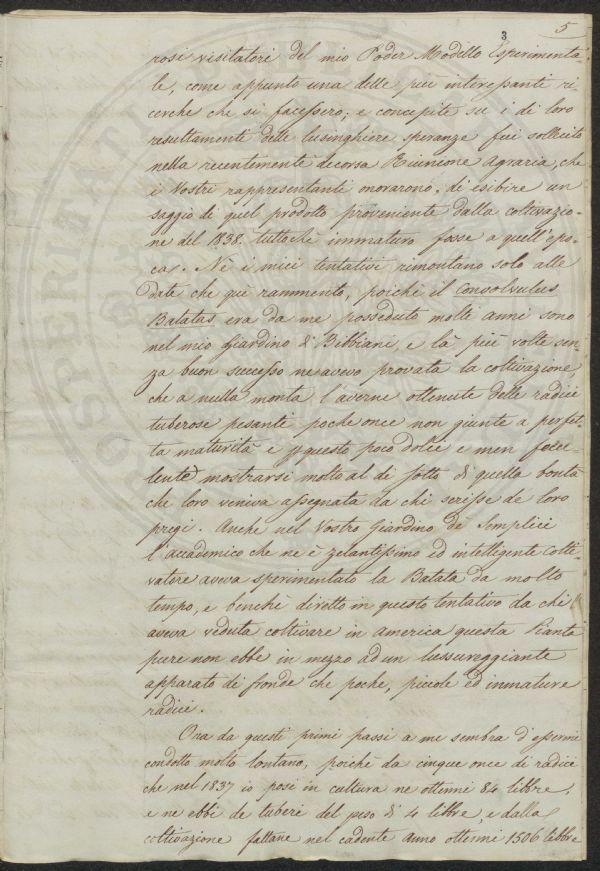 3
5
rosi visitatori del mio Poder Modello Esperimenta
le, come appunto una delle più interessanti ri-
cerche che si facessero; e concepite su i di loro
resultamenti delle lusinghiere speranze fui sollecito
nella recentemente decorsa Riunione agraria, che
i Vostri rappresentanti onorarono, di esibire un
saggio di quel prodotto proveniente dalla coltivazio-
ne del 1838. tuttochè immaturo fosse a quell'epo-
ca. Nè i miei tentativi rimontano solo alle
date che qui rammento, poichè il Consolvulus
Batatas era da me posseduto molti anni sono
nel mio Giardino di Bibbiani, e là più volte sen-
za buon successo ne avevo provata la coltivazione
che a nulla monta l'averne ottenute delle radici
tuberose pesanti poche once non giunte a perfet-
ta maturità e p questo poco dolci e men
mostrarsi molto al di sotto di quella bontà
che loro veniva assegnata da chi scrisse de loro
pregi. Anche nel Vostro Giardino de Semplici
l'accademico che ne è zelantissimo ed intelligente colti-
vatore aveva sperimentato la Batata da molto
tempo, e benchè diretto in questo tentativo da chi
aveva veduta coltivare in america questa Pianta
pure non ebbe in mezzo ad un lussureggiante
apparato di fronde che poche, piccole ed immature
radici.
Ora da questi primi passi a me sembra d'essermi
condotto molto lontano, poichè da cinque once di radici
che nel 1837 io posi in cultura ne ottenni 84 libbre,
e ne ebbi de tuberi del peso di 4 libbre, e dalla
coltivazione fattane nel cadente anno ottenni 1506 libbre